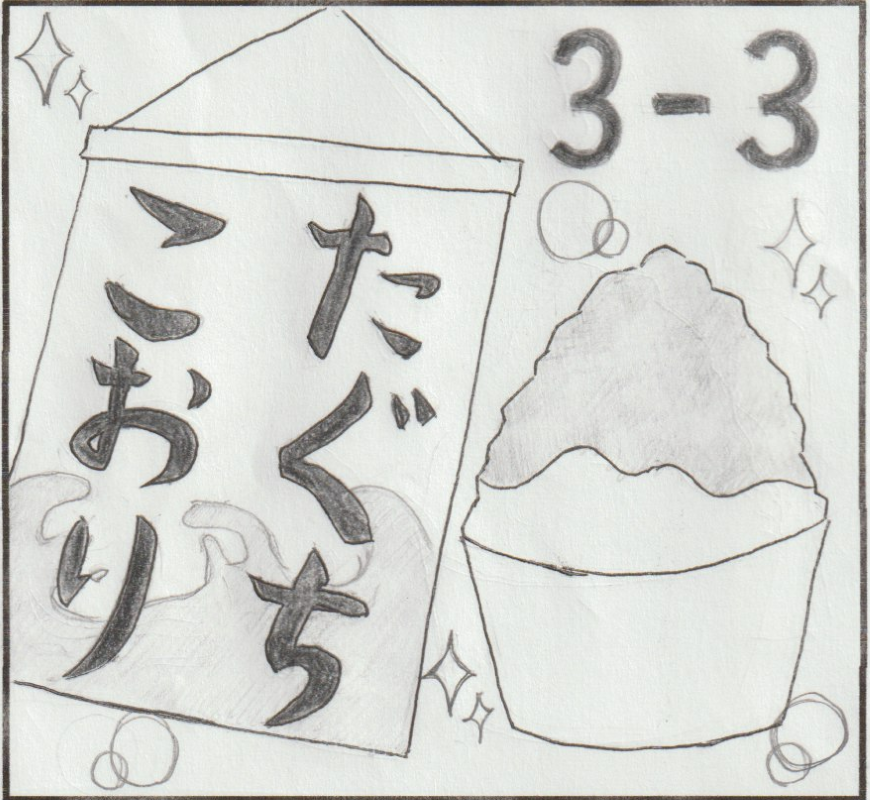 3-3
たぐち
こおり